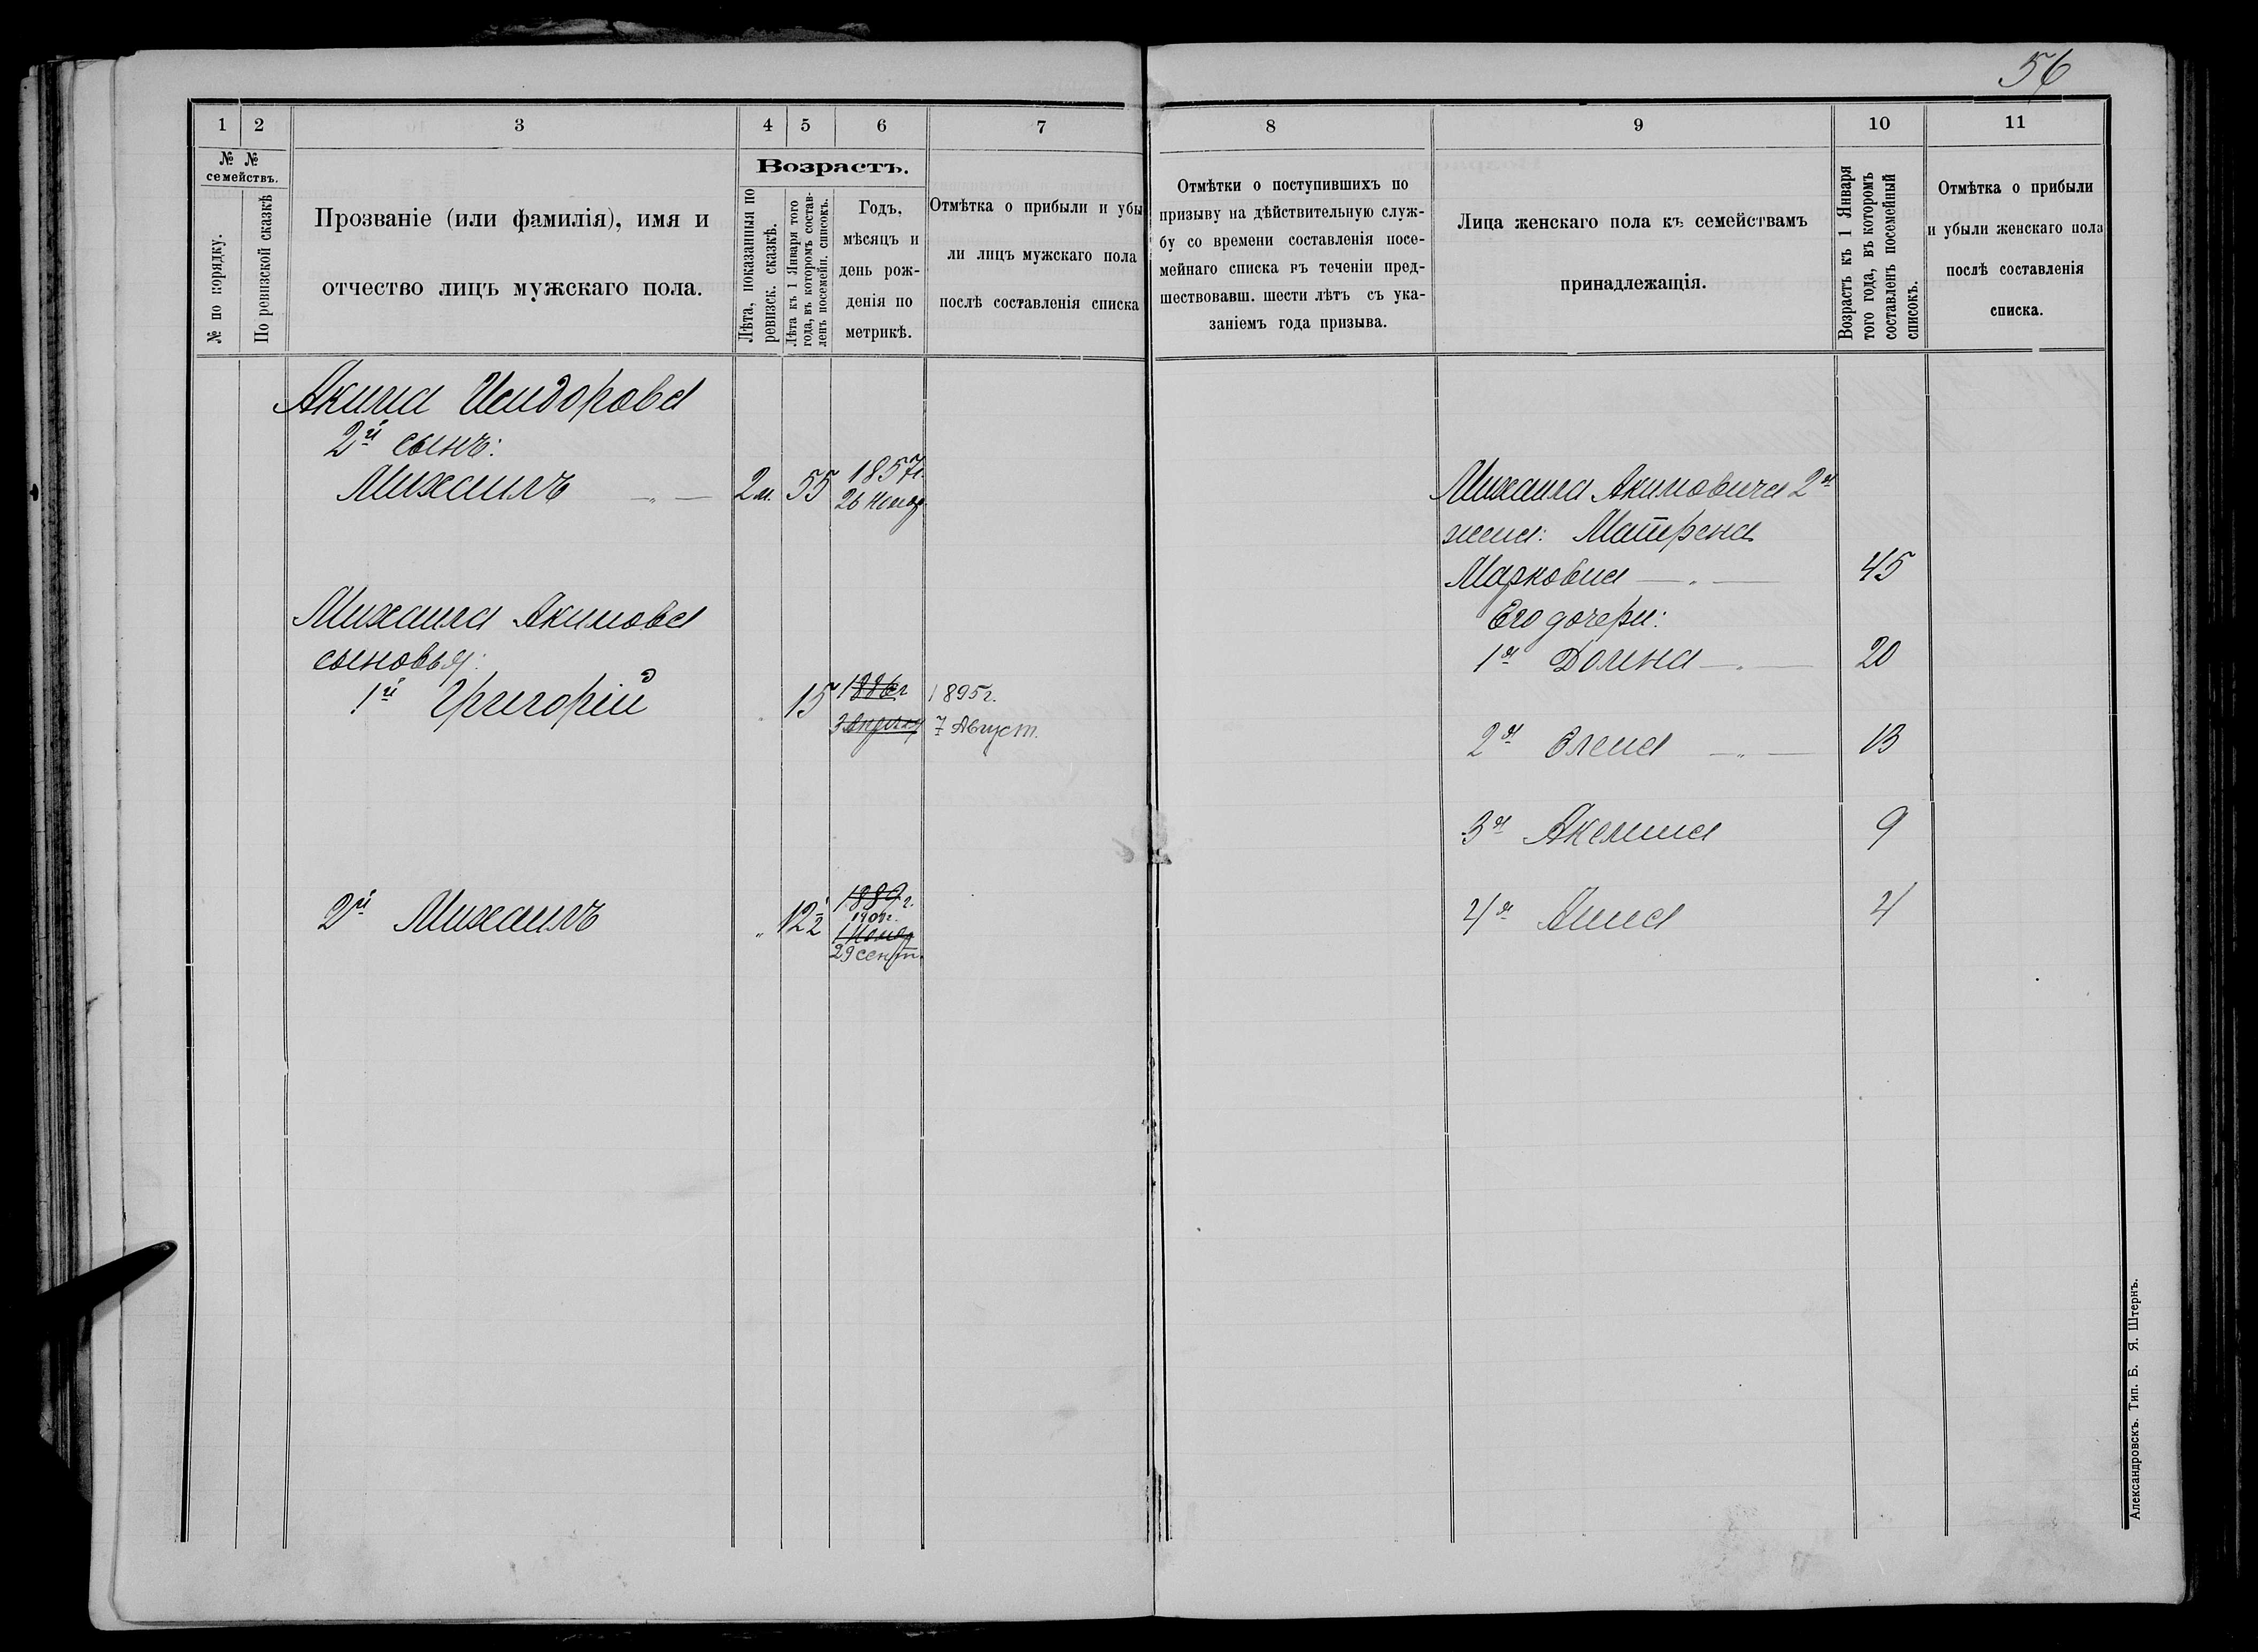 56
1 2 3 4 5 6 7
№ №
семействъ.
№ по порядку.
По ревизской сказкѣ
Прозваніе (или фамилія), имя и
отчество лицъ мужскаго пола.
Возрастъ.
Лѣта, показанныя по
ревизск. сказкѣ.
Лѣта къ 1 Января того
года, въ которомъ состав-
ленъ посемейн. списокъ.
Годъ,
мѣсяцъ и
день рож-
денія по
метрикѣ.
Отмѣтка о прибыли и убы
ли лицъ мужскаго пола
послѣ составленія списка
Акима Исидорова
2й сынъ:
Михаилъ 2 м. 55 1857г.
26 Ноябр.
Михаила Акимова
сыновья:
1й Григорій 15 1886г 1895г.
3 Апреля 7 Август.
2й Михаилъ " 12½ 1889г.
1901г.
1 Ноябр
29 сент.
8 9 10 11
Отмѣтки о поступившихъ по
призыву на дѣйствительную служ-
бу со времени составленія посе-
мейнаго списка въ теченіи пред-
шествовавш. шести лѣтъ съ ука-
заніемъ года призыва.
Лица женскаго пола къ семействамъ
принадлежащія.
Возрастъ къ 1 Января
того года, въ которомъ
составленъ посемейный
списокъ.
Отмѣтка о прибыли
и убыли женскаго пола
послѣ составленія
списка.
Михаила Акимовича 2я
жена: Матрена
Маркова 45
Его дочери:
1я Домна 20
2я Елена 13
3я Акелина 9
4я Анна 4
Александровскъ. Тип. Б. Я. Штернъ.